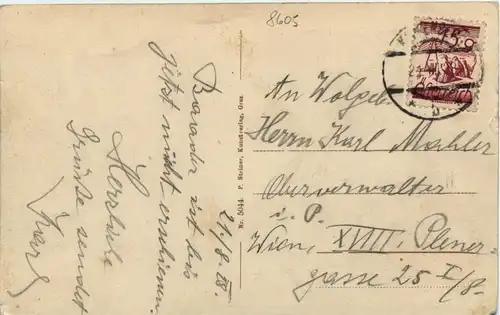 8605
21/8 28.
Barader ist bis
jetzt nicht erschienen.
Herzliche
Grüße sendet
Karl
Nr. 5044 P. Steiner, Kunstverlag, Graz.
An Wolgeb.
Herrn Karl Mahler
Oberverwalter
i. P.
Wien, XVIII. Plener-
gasse 25 I/8.